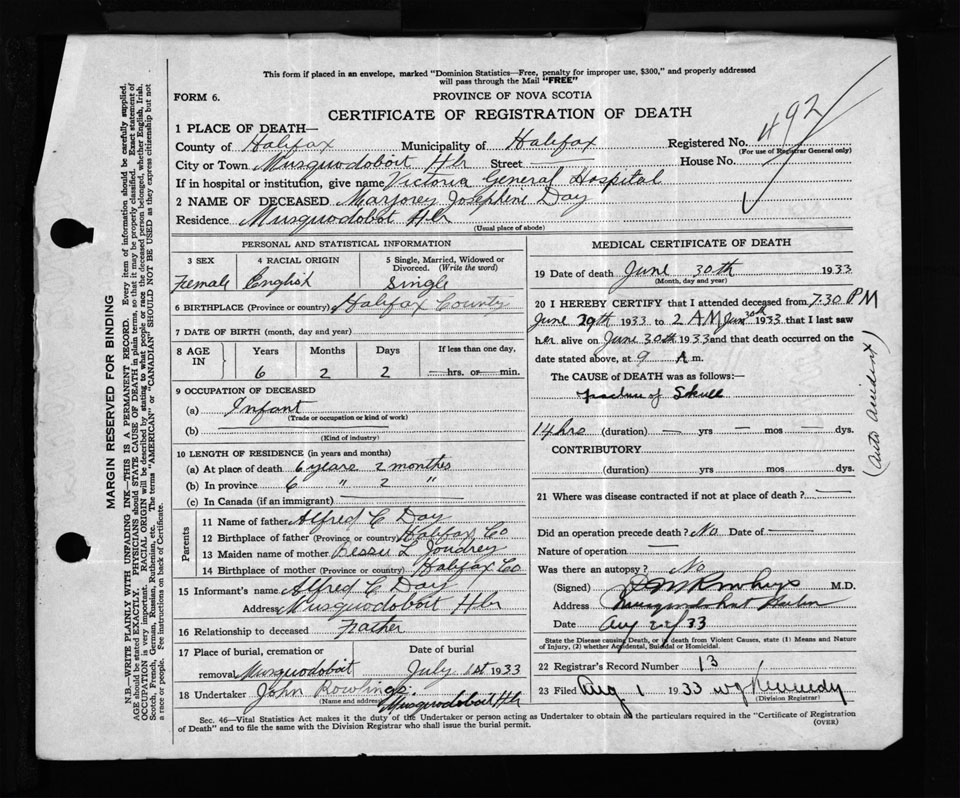 This form if placed in an envelope, marked "Dominion Statistics—Free, penalty for improper use, $300," and properly addressed
will pass through the Mail "FREE"
FORM 6.
PROVINCE OF NOVA SCOTIA
CERTIFICATE OF REGISTRATION OF DEATH
492
1 PLACE OF DEATH—
County of Halifax Municipality of Halifax Registered No.
(For use of Registrar General only)
City or Town Musquodoboit Hbr Street — House No.
If in hospital or institution, give name Victoria General Hospital
2 NAME OF DECEASED Marjorey Josephine Day
Residence Musquodoboit Hbr
(Usual place of abode)
PERSONAL AND STATISTICAL INFORMATION
3 SEX 4 RACIAL ORIGIN 5 Single, Married, Widowed or Divorced. (Write the word)
Female English Single
6 BIRTHPLACE (Province or country) Halifax County
7 DATE OF BIRTH (month, day and year)
8 AGE IN Years Months Days If less than one day,
6 2 2 — hrs. or — min.
9 OCCUPATION OF DECEASED
(a) Infant
(Trade or occupation or kind of work)
(b)
(Kind of industry)
10 LENGTH OF RESIDENCE (in years and months)
(a) At place of death 6 years 2 months
(b) In province 6 " 2 "
(c) In Canada (if an immigrant)
Parents
11 Name of father Alfred C Day
12 Birthplace of father (Province or country) Halifax Co
13 Maiden name of mother Bessie L Joudrey
14 Birthplace of mother (Province or country) Halifax Co
15 Informant's name Alfred C Day
Address Musquodoboit Hbr
16 Relationship to deceased Father
17 Place of burial, cremation or Date of burial
removal Musquodoboit July 1st 1933
18 Undertaker John Rowlings.
(Name and address) Musquodoboit Hbr
MEDICAL CERTIFICATE OF DEATH
19 Date of death June 30th 1933
(Month, day and year)
20 I HEREBY CERTIFY that I attended deceased from 7:30 PM
June 29th 1933 to 2 AM Jun 30th 1933 that I last saw
her alive on June 30th 1933 and that death occurred on the
date stated above, at 9 A m.
The CAUSE of DEATH was as follows:—
fracture of Skull
14 hrs (duration) — yrs — mos — dys.
CONTRIBUTORY
(duration) yrs. mos. dys.
(Auto Accident)
21 Where was disease contracted if not at place of death? —
Did an operation precede death? No Date of —
Nature of operation —
Was there an autopsy? No
(Signed) M.D.
Address Musquodoboit Harbor
Date Aug 22/33
State the Disease causing Death, or if death from Violent Causes, state (1) Means and Nature
of Injury, (2) whether Accidental, Suicidal or Homicidal.
22 Registrar's Record Number 13
23 Filed Aug 1 1933 W J Kennedy
(Division Registrar)
Sec. 46—Vital Statistics Act makes it the duty of the Undertaker or person acting as Undertaker to obtain all the particulars required in the "Certificate of Registration
of Death" and to file the same with the Division Registrar who shall issue the burial permit.
(OVER)
MARGIN RESERVED FOR BINDING
N.B.—WRITE PLAINLY WITH UNFADING INK—THIS IS A PERMANENT RECORD. Every item of information should be carefully supplied.
AGE should be stated EXACTLY. PHYSICIANS should STATE CAUSE OF DEATH in plain terms, so that it may be properly classified. Exact statement of
OCCUPATION is very important. RACIAL ORIGIN will be described by stating to what people or race the deceased person belonged, whether English, Irish,
Scotch, French, German, Russian, Ruthenian, etc. The terms "AMERICAN" or "CANADIAN" SHOULD NOT BE USED as they express citizenship but not
a race or people. Fee instructions on back of Certificate.